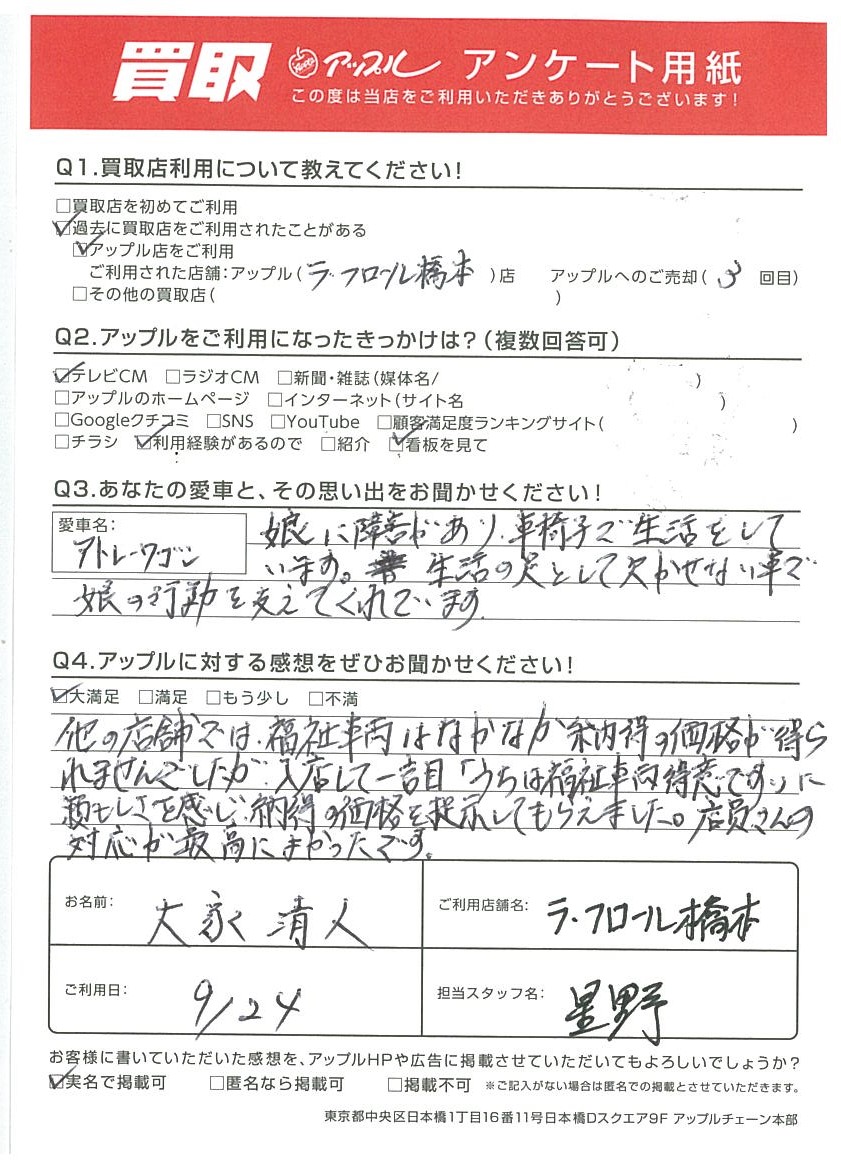 買取 アップル アンケート用紙
この度は当店をご利用いただきありがとうございます!
Q1.買取店利用について教えてください!
□買取店を初めてご利用
☑過去に買取店をご利用されたことがある
☑アップル店をご利用
ご利用された店舗:アップル(ラ・フロール橋本)店 アップルへのご売却(3回目)
□その他の買取店( )
Q2.アップルをご利用になったきっかけは?(複数回答可)
☑テレビCM □ラジオCM □新聞・雑誌(媒体名/ )
□アップルのホームページ □インターネット(サイト名 )
□Googleクチコミ □SNS □YouTube □顧客満足度ランキングサイト( )
□チラシ ☑利用経験があるので □紹介 ☑看板を見て
Q3.あなたの愛車と、その思い出をお聞かせください!
愛車名:
アトレーワゴン
娘に障害があり、車椅子で生活をして
います。生活の足として欠かせない車で
娘の行動を支えてくれています。
Q4.アップルに対する感想をぜひお聞かせください!
☑大満足 □満足 □もう少し □不満
他の店舗では、福祉車両はなかなか納得の価格が得ら
れませんでしたが、入店して一言目「うちは福祉車両得意です」に
頼もしさを感じ、納得の価格を提示してもらえました。店員さんの
対応が最高によかったです。
お名前: 大家 清人 ご利用店舗名: ラ・フロール橋本
ご利用日: 9/24 担当スタッフ名: 星野
お客様に書いていただいた感想を、アップルHPや広告に掲載させていただいてもよろしいでしょうか?
☑実名で掲載可 □匿名なら掲載可 □掲載不可 ※ご記入がない場合は匿名での掲載とさせていただきます。
東京都中央区日本橋1丁目16番11号日本橋Dスクエア9F アップルチェーン本部